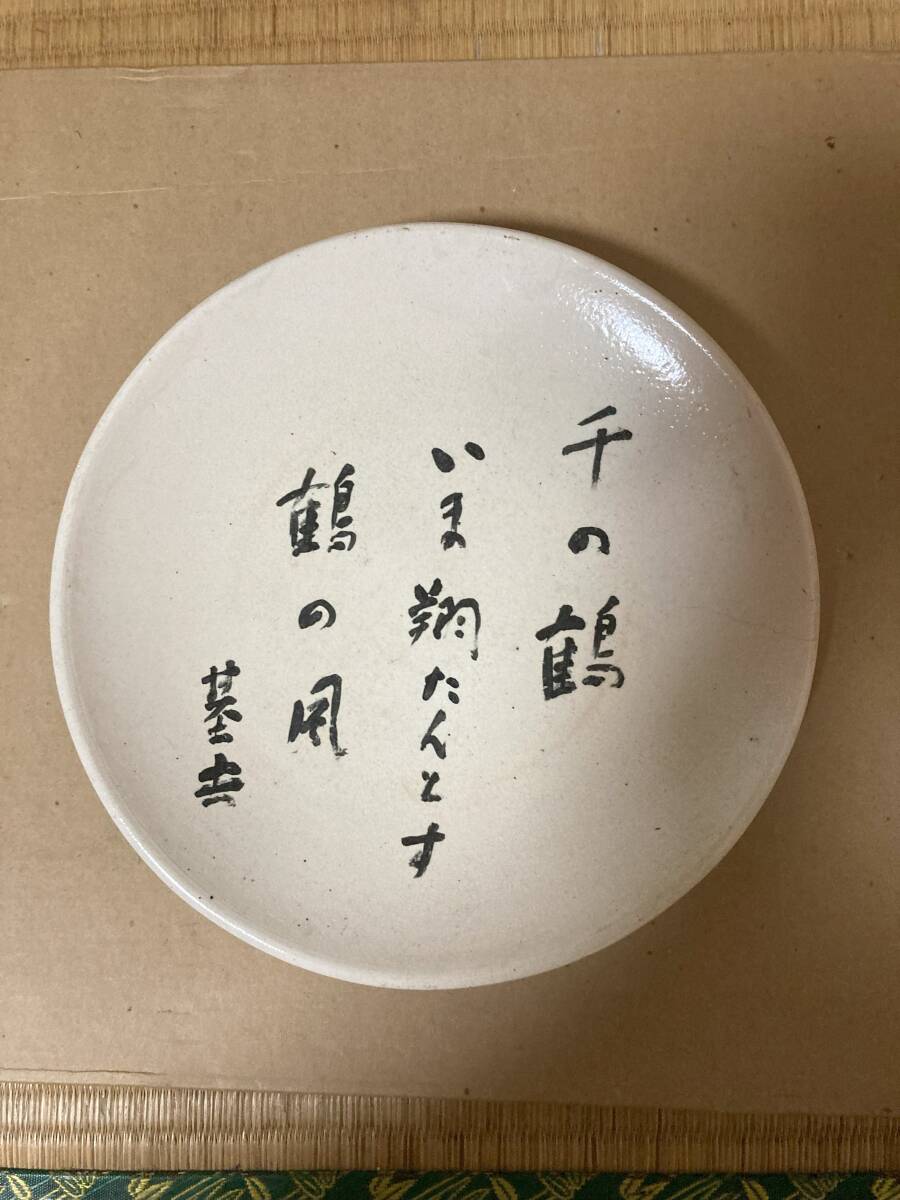 千の鶴
いま翔たんとす
鶴の風
基吉